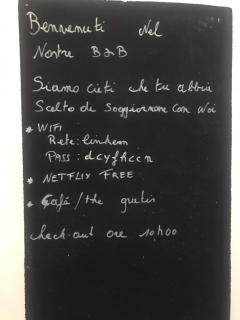 Benvenuti Nel
Nostro B&B
Siamo lieti che tu abbia
Scelto de Soggiornare con noi
* WIFI
Rete: linhem
PASS: dcyfhccn
* NETFLIX FREE
* Cafè/the gratis
check-out ore 10h00